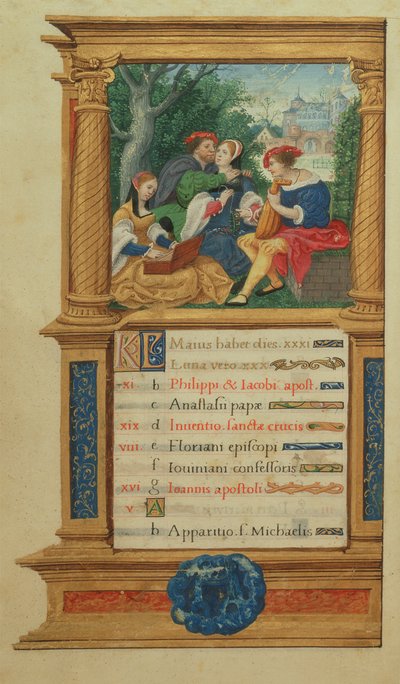 KL Maius habet dies. xxxi
Luna vero xxx
xi b Philippi & Iacobi apost.
c Anastasii papæ
xix d Inuentio. sanctæ crucis
viii e Floriani episcopi
f Iouiniani confessoris
xvi g Ioannis apostoli
v A
b Apparitio. s. Michaelis